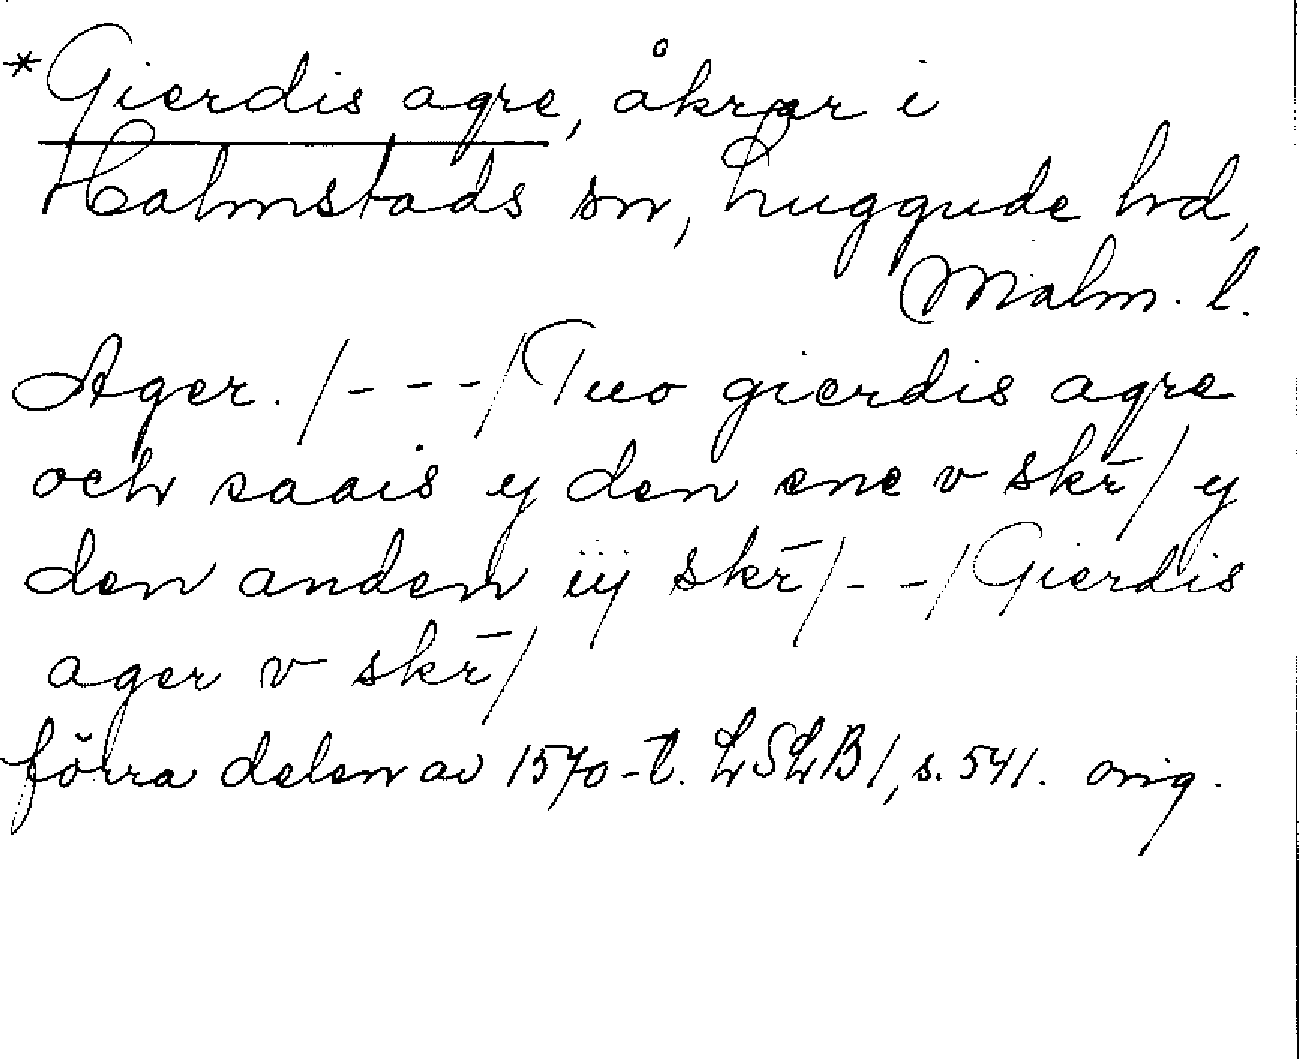 *Gierdis agre, åkrar i
Halmstads sn, Luggude hd,
Malm. l.
Ager. /- - -/ Tuo gierdis agre
och saais y den ene v skr̄/ y
den anden iij skr̄/- -/ Gierdis
ager v skr̄/
förra delen av 1570-t. LSLB 1, s. 541. orig.